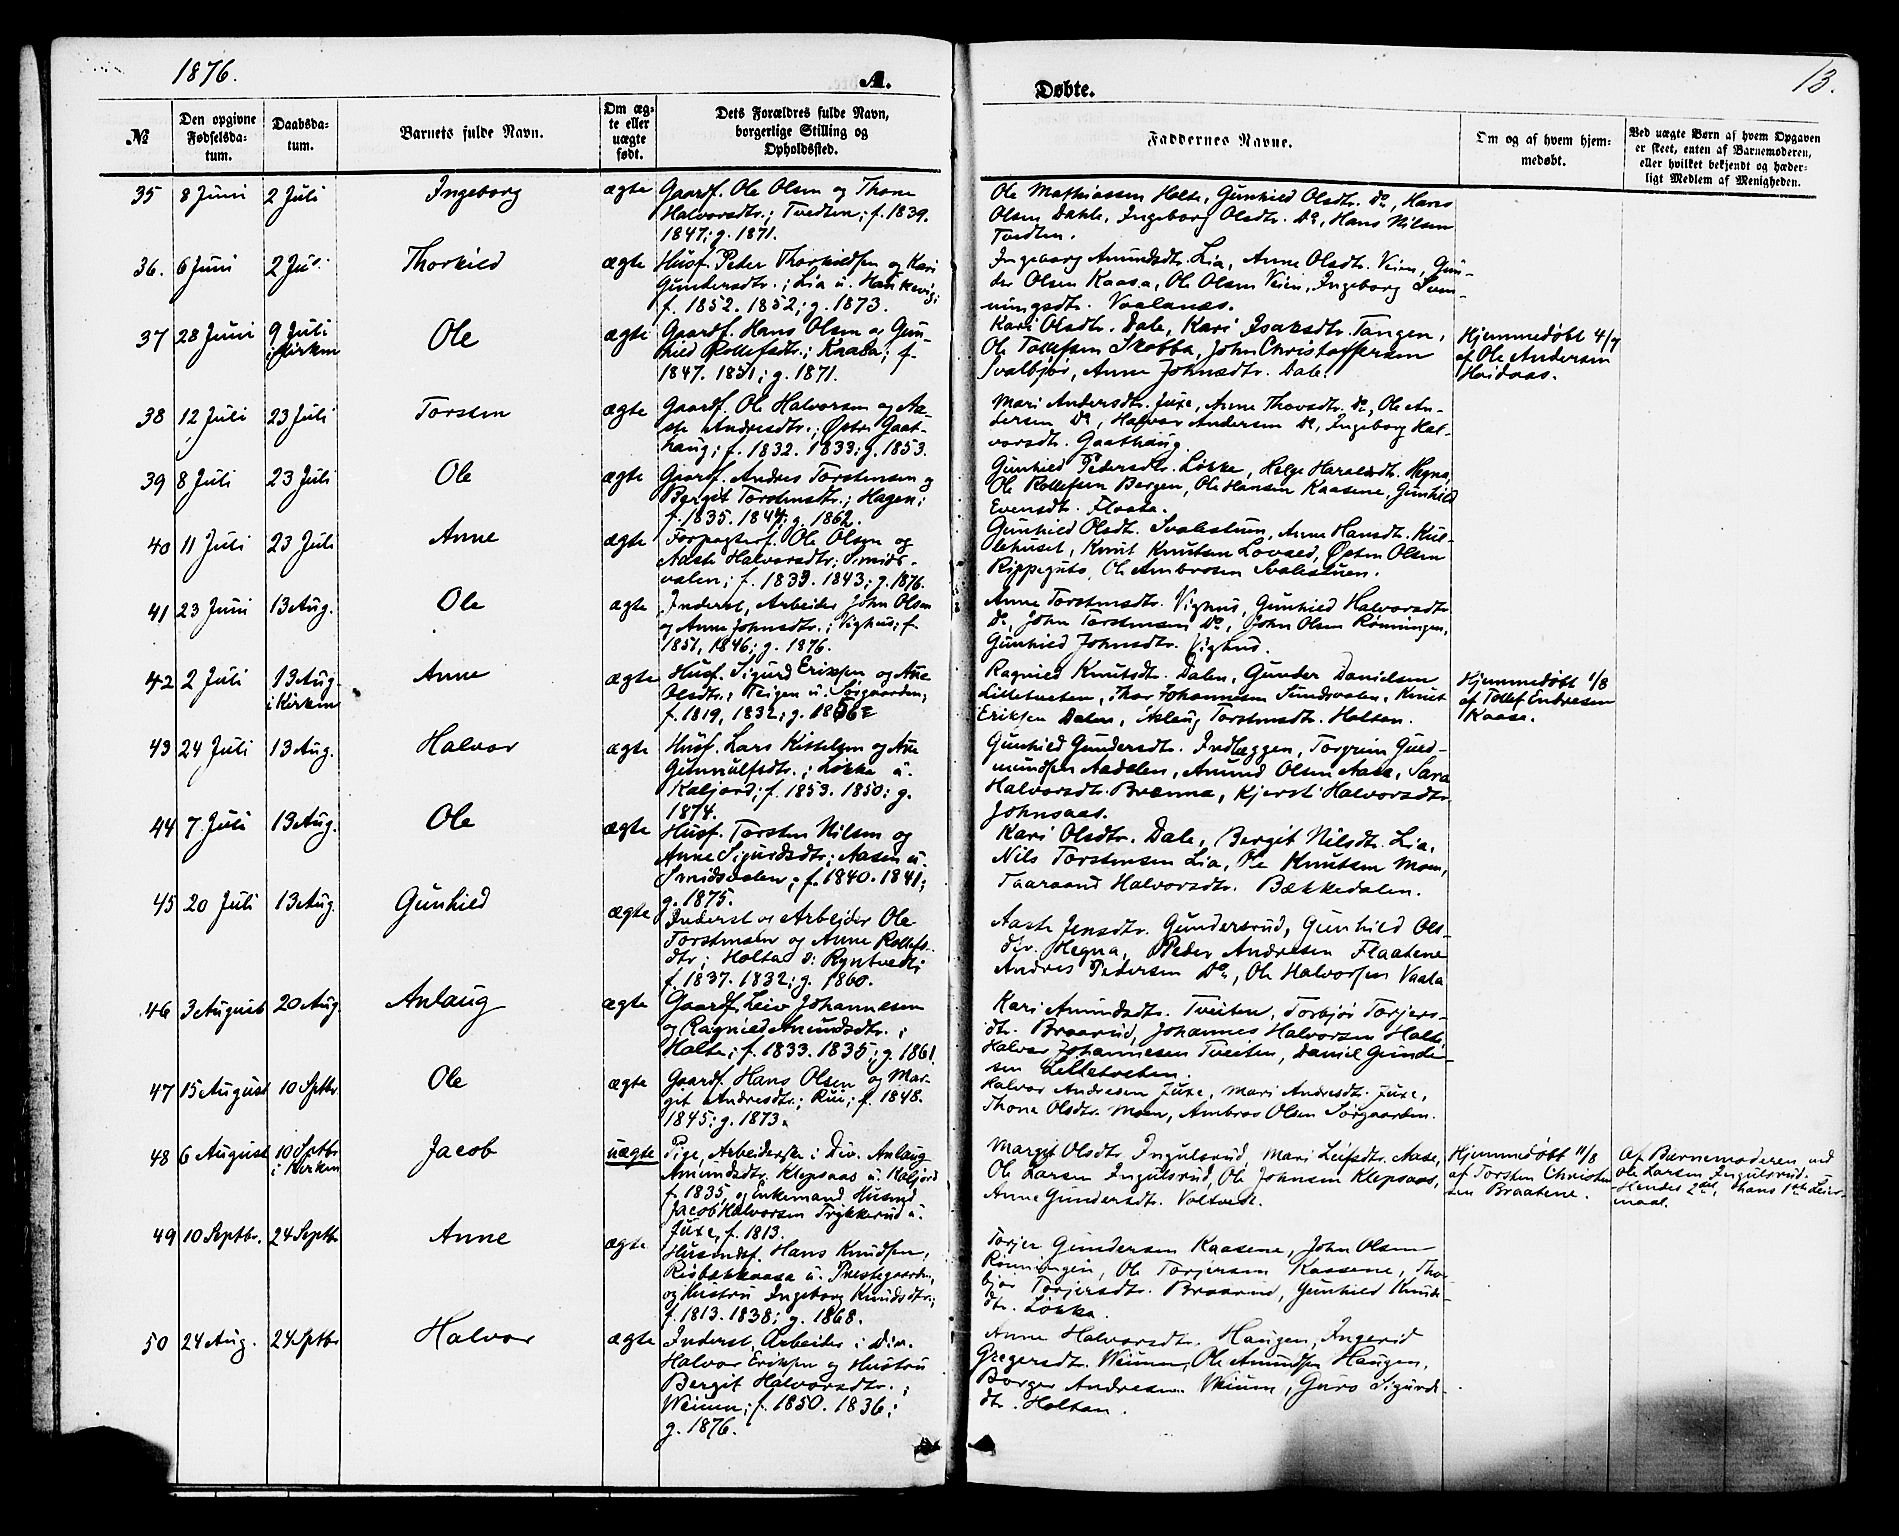 1876.
A.
Døbte.
13.
№
Den opgivne Fødselsda-tum.
Daabsda-tum.
Barnets fulde Navn.
Om æg-te eller uægte født.
Dets Forældres fulde Navn, borgerlige Stilling og Opholdssted.
Faddernes Navne.
Om og af hvem hjem-medøbt.
Ved uægte Børn af hvem Opgaven er skeet, enten af Barnemoderen, eller hvilket bekjendt og hæder-ligt Medlem af Menigheden.
35 8 Juni 2 Juli Ingeborg ægte Gaardf. Ole Olsen og Thone
Halvorsdtr.; Tvedten; f. 1839.
1847; g. 1871.
Ole Mathiassen Holte, Gunhild Olsdtr. Do, Hans
Olsen Dahle, Ingeborg Olsdtr. Do, Hans Nilsen
Tvedten.
36. 6 Juni 2 Juli Thorkild ægte Husf. Peder Thorkildsen og Kari
Gundersdtr.; Lia u. Haukevig;
f. 1852. 1852; g. 1873.
Ingeborg Amundsdtr. Lia, Anne Olsdtr. Veien, Gun-
der Olsen Kaasa, Ole Olsen Veien, Ingeborg Sven-
ningsdtr. Vaalanes.
37 28 Juni 9 Juli i Kirken Ole ægte Gaardf. Hans Olsen og Gun-
hild Rollefsdtr.; Kaasa; f.
1847. 1851; g. 1871.
Kari Olsdtr. Dale, Kari Isaksdtr. Tangen,
Ole Tollefsen Skobba, John Christoffersen
Svalbjør, Anne Johnsdtr. Dale.
Hjemmedøbt 4/7
af Ole Andersen
Hvidaas.
38 12 Juli 23 Juli Torsten ægte Gaardf. Ole Halvorsen og Aa-
ste Andresdtr.; Østre Gaat-
haug; f. 1832. 1833; g. 1853.
Mari Andersdtr. Juxe, Anne Thovsdtr. Do, Ole An-
dersen Do, Halvor Andersen Do, Ingeborg Hal-
vorsdtr. Gaathaug.
39 8 Juli 23 Juli Ole ægte Gaardf. Andres Torstensen og
Bergit Torstensdtr.; Hagen;
f. 1835. 1844; g. 1862.
Gunhild Pedersdtr. Løkke, Helge Haraldsdtr. Hegna,
Ole Rollefsen Bergen, Ole Hansen Kaasene, Gunhild
Evensdtr. Flaata.
40 11 Juli 23 Juli Anne ægte Forpagterf. Ole Olsen og
Aaste Halvorsdtr.; Smids-
valen; f. 1839. 1843; g. 1876.
Gunhild Olsdt. Svalestuen, Anne Hansdt. Kul-
lehuset, Knut Knutsen Lovald, Østen Olsen
Rippeguto, Ole Ambrosen Svalestuen.
41 23 Juni 13 Aug. Ole ægte Inderst, Arbeider John Olsen
og Anne Johnsdtr.; Vighus; f.
1851, 1846; g. 1876.
Anne Torstensdtr. Vighus, Gunhild Halvorsdtr.
Do, John Torstensen Do, John Olsen Rønningen,
Gunhild Johnsdtr. Vighus.
42 2 Juli 13 Aug. i Kirken Anne ægte Husf. Sigurd Eriksen og Ane
Olsdtr.; Teigen u. Sørgaarden;
f. 1819, 1832; g. 1856
Ragnild Knutsdt. Dalen, Gunder Danielsen
Lilletveten, Thor Johannesen Sundsvalen, Knut
Eriksen Dalen, Aslaug Torstensdtr. Holtan.
Hjemmedøbt 1/8
af Tollef Endresen
Kaase.
43 24 Juli 13 Aug. Halvor ægte Husf. Lars Kittelsen og Ane
Gunnulfsdtr.; Løkka u.
Kaljord; f. 1853. 1850; g.
1874.
Gunhild Gundersdtr. Indlæggen, Torgrim Gud-
mundsen Aadalen, Amund Olsen Aase, Sara
Halvorsdtr. Brenna, Kjersti Halvorsdtr.
Johnsaas.
44 7 Juli 13 Aug. Ole ægte Husf. Torsten Nilsen og
Anne Sigurdsdtr.; Aasen u.
Smidsvalen; f. 1840. 1841;
g. 1875.
Kari Olsdtr. Dale, Bergit Nilsdtr. Lia,
Nils Torstensen Lia, Ole Knutsen Moen,
Taaraand Halvorsdtr. Bækkedalen.
45 20 Juli 13 Aug. Gunhild ægte Inderst og Arbeider Ole
Torstensen og Anne Rollefs-
dtr; Holta u. Ryntvedt;
f. 1837. 1832; g. 1860.
Aaste Jensdtr. Gundersrud, Gunhild Ols-
dtr. Hegna, Peder Andresen Flaatene
Andres Pedersen Do, Ole Halvorsen Vaala
46 3 August 20 Aug. Anlaug ægte Gaardf. Leiv Johannesen
og Ragnild Amundsdtr.;
Holte; f. 1833. 1835; g. 1861.
Kari Amundsdtr. Tveiten, Torbjør Torjers-
dtr. Braarud, Johannes Halvorsen Holte,
Halvor Johannesen Tveiten, Daniel Gunder-
sen Lilletveten.
47 15 August 10 Sptbr. Ole ægte Gaardf. Hans Olsen og Mar-
git Andresdtr.; Rui; f. 1848.
1845; g. 1873.
Halvor Andresen Juxe, Mari Andresdtr. Juxe,
Thone Olsdtr. Moen, Ambros Olsen Sørgaarden.
48 6 August 10 Sptbr i Kirken Jacob uægte Pige, Arbeiderske i Div. Anlaug
Amundsdtr. Klepsaas u. Kaljord
f. 1835, og Enkemand Husmd
Jacob Halvorsen Trykkerud u.
Juxe, f. 1813.
Margit Olsdtr. Ingulsrud, Mari Leifsdtr. Aase,
Ole Larsen Ingulsrud, Ole Johnsen Klepsaas,
Anne Gundersdtr. Voltvedt.
Hjemmedøbt 11/8
af Torsten Christen-
sen Braatene.
Af Barnemoderen ved
Ole Larsen Ingulsrud.
Hendes 2det, hans 1ste Leier-
maal.
49 10 Septbr. 24 Septbr Anne ægte Husmdsf. Hans Knudsen,
Risbækkaasa u. Prestegaarden,
og Hustru Ingeborg Knudsdtr.;
f. 1813. 1838; g. 1868.
Torjer Gundersen Kaasene, John Olsen
Rønningen, Ole Torjersen Kaasene, Thor-
bjør Torjersdtr. Braarud, Gunhild Knuts-
dtr. Løkka.
50 24 Aug. 24 Sptbr Halvor ægte Inderst, Arbeider i Div.
Halvor Eriksen og Hustru
Bergit Halvorsdtr.;
Weium; f. 1850. 1836;
g. 1876.
Anne Halvorsdtr. Haugen, Ingerid
Gregersdtr. Weium, Ole Amundsen Haugen,
Borger Andresen Weium, Guro Sigurds-
dtr. Holtan.